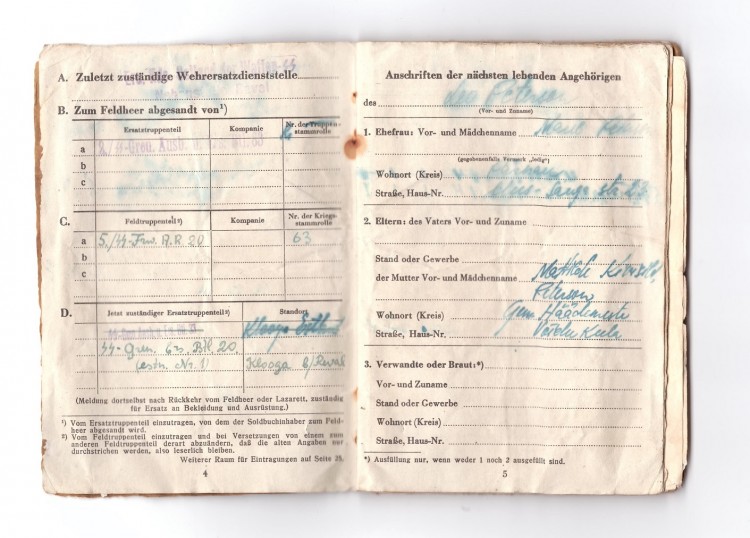 A. Zuletzt zuständige Wehrersatzdienststelle
B. Zum Feldheer abgesandt von¹)
Ersatztruppenteil Kompanie Nr. der Truppen-
stammrolle
a
b
c
C. Feldtruppenteil²) Kompanie Nr. der Kriegs-
stammrolle
a 5./SS-Frw. A.R. 20 63
b
c
D. Jetzt zuständiger Ersatztruppenteil²) Standort
Klooga
SS-Gren. Ers Btl. 20
(estn. Nr. 1) Klooga b/Reval
(Meldung dortselbst nach Rückkehr vom Feldheer oder Lazarett, zuständig
für Ersatz an Bekleidung und Ausrüstung.)
¹) Vom Ersatztruppenteil einzutragen, von dem der Soldbuchinhaber zum Feld-
heer abgesandt wird.
²) Vom Feldtruppenteil einzutragen und bei Versetzungen von einem zum
anderen Feldtruppenteil derart abzuändern, daß die alten Angaben nur
durchstrichen werden, also leserlich bleiben.
Weiterer Raum für Eintragungen auf Seite 28.
4
Anschriften der nächsten lebenden Angehörigen
des
(Vor- und Zuname)
1. Ehefrau: Vor- und Mädchenname
(gegebenenfalls Vermerk „ledig")
Wohnort (Kreis)
Straße, Haus-Nr.
2. Eltern: des Vaters Vor- und Zuname
Stand oder Gewerbe
der Mutter Vor- und Mädchenname
Wohnort (Kreis) Häädemeeste
Straße, Haus-Nr.
3. Verwandte oder Braut:*)
Vor- und Zuname
Stand oder Gewerbe
Wohnort (Kreis)
Straße, Haus-Nr.
*) Ausfüllung nur, wenn weder 1 noch 2 ausgefüllt sind.
5